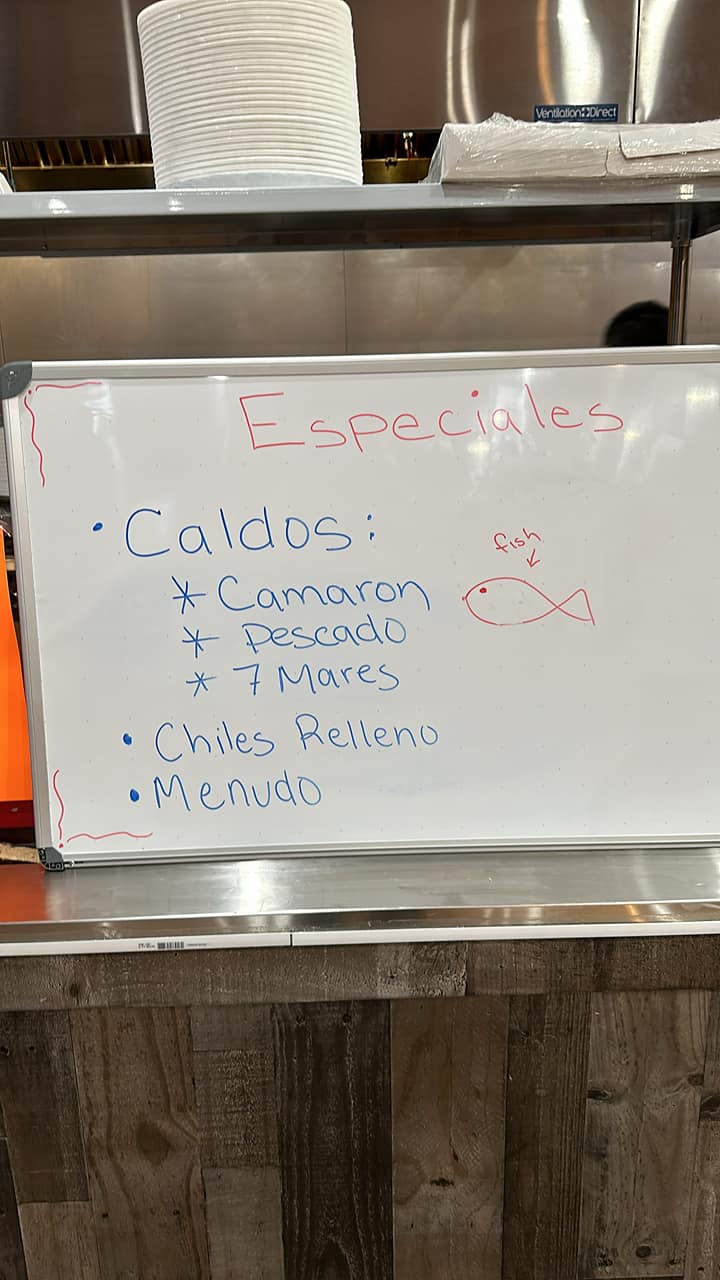 Ventilation Direct
Especiales
• Caldos:
fish
* Camaron
* Pescado
* 7 Mares
• Chiles Relleno
• Menudo